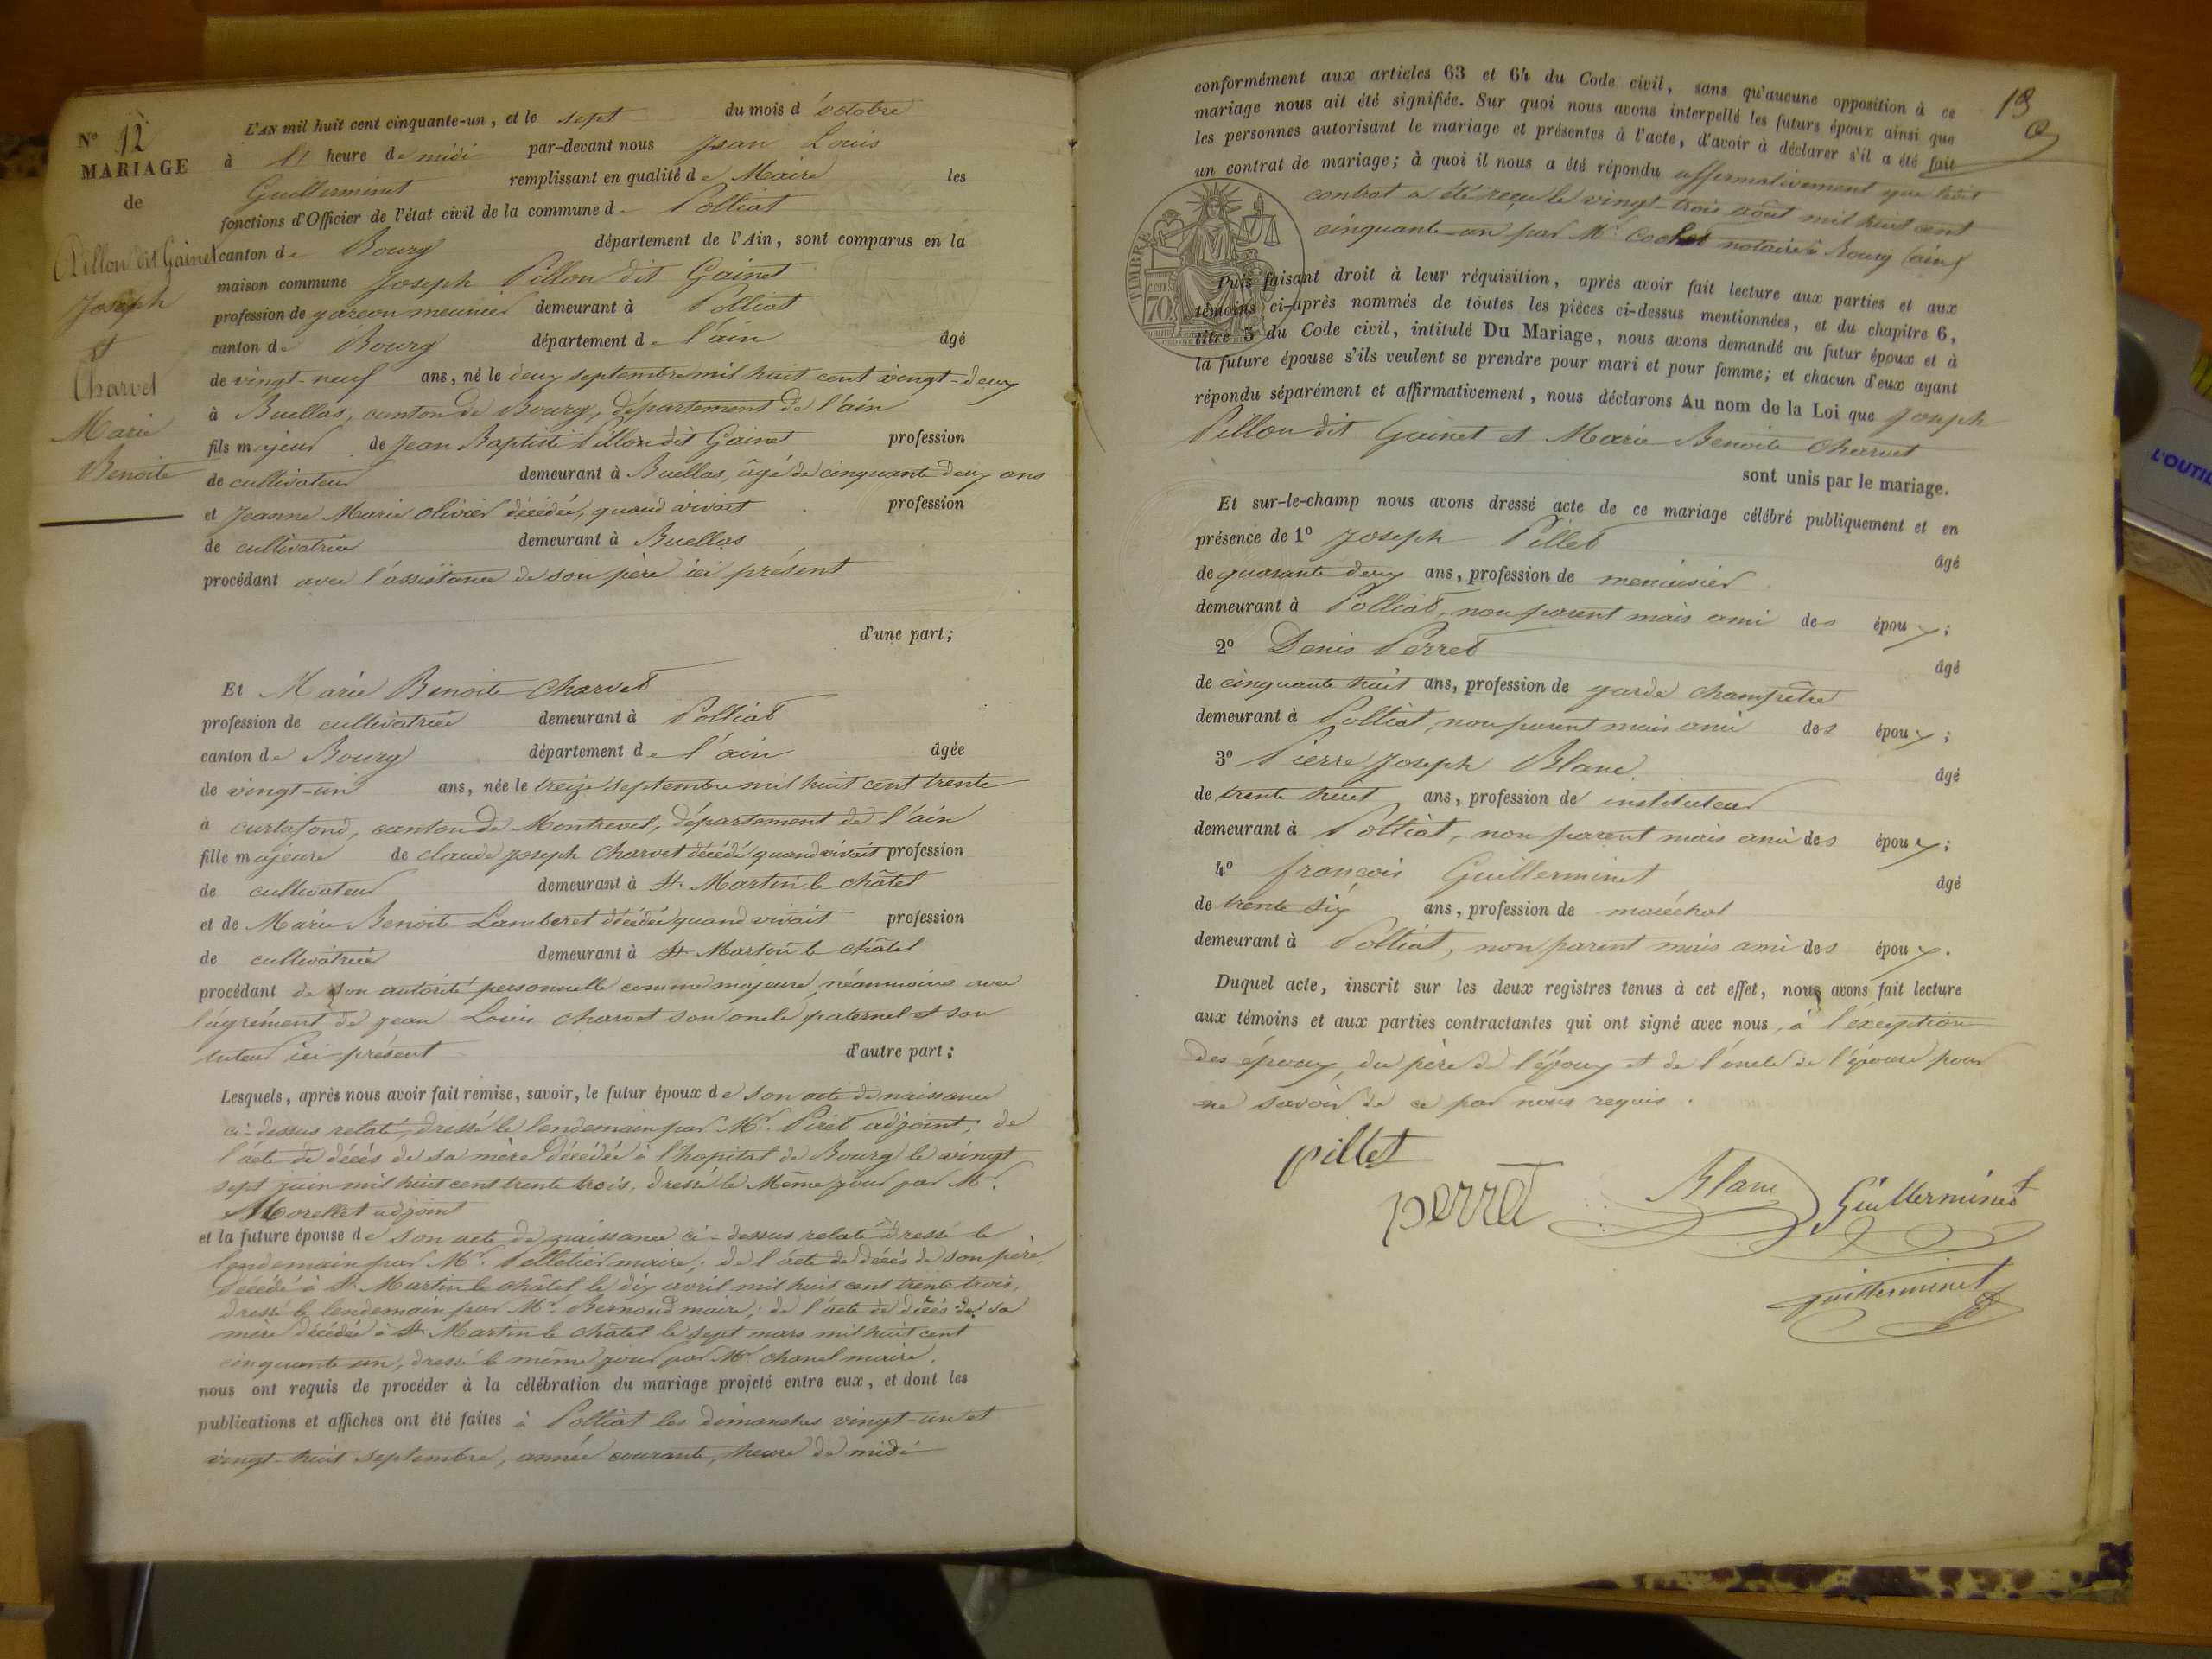 Nº 12
MARIAGE
de
Pillon dit Gainet
Joseph
et
Charvet
Marie
Benoite
L'AN mil huit cent cinquante-un, et le sept du mois d'octobre
à l' heure de midi par-devant nous Jean Louis
Guillerminet remplissant en qualité de Maire les
fonctions d'Officier de l'état civil de la commune de Polliat
canton de Bourg département de l'Ain, sont comparus en la
maison commune Joseph Pillon dit Gainet
profession de garcon meunier demeurant à Polliat
canton de Bourg département de l'ain âgé
de vingt-neuf ans, né le deux septembre mil huit cent vingt-deux
à Buellas, canton de Bourg, département de l'ain
fils majeur de Jean Baptiste Pillon dit Gainet profession
de cultivateur demeurant à Buellas, âgé de cinquante deux ans
et Jeanne Marie Olivier décédée, quand vivait profession
de cultivatrice demeurant à Buellas
procédant avec l'assistance de son père ici présent
d'une part;
Et Marie Benoite Charvet
profession de cultivatrice demeurant à Polliat
canton de Bourg département de l'ain âgée
de vingt-un ans, née le treize septembre mil huit cent trente
à Curtafond, canton de Montrevel, département de l'ain
fille majeure de claude joseph Charvet décédé quand vivait profession
de cultivateur demeurant à St. Martin le châtel
et de Marie Benoite Lamberet décédée quand vivait profession
de cultivatrice demeurant à St Martin le châtel
procédant de son autorité personnelle comme majeure, néanmoins avec
l'agrément de jean Louis Charvet son oncle paternel et son
tuteur ici présent d'autre part;
Lesquels, après nous avoir fait remise, savoir, le futur époux de son acte de naissance
ci-dessus relaté, dressé le lendemain par Mr. Piret adjoint; de
l'acte de décès de sa mère décédée à l'hopital de Bourg le vingt
sept juin mil huit cent trente trois, dressé le Même jour par Mr.
Morellet adjoint
et la future épouse de son acte de naissance ci-dessus relaté dressé le
lendemain par Mr. Pelletier maire; de l'acte de décès de son père,
décédé à St Martin le châtel le dix avril mil huit cent trente trois,
dressé le lendemain par Mr. Bernoud maire; de l'acte de décès de sa
mère décédée à St Martin le châtel le sept mars mil huit cent
cinquante un, dressé le même jour par Mr. chanel maire.
nous ont requis de procéder à la célébration du mariage projeté entre eux, et dont les
publications et affiches ont été faites à Polliat les dimanches vingt-un et
vingt-huit septembre, année courante, heure de midi
13
conformément aux articles 63 et 64 du Code civil, sans qu'aucune opposition à ce
mariage nous ait été signifiée. Sur quoi nous avons interpellé les futurs époux ainsi que
les personnes autorisant le mariage et présentes à l'acte, d'avoir à déclarer s'il a été fait
un contrat de mariage; à quoi il nous a été répondu affirmativement que ledit
contrat a été reçu le vingt-trois août mil huit cent
cinquante-un par Me Cochet notaire à Bourg (ain)
TIMBRE
70 cen
Puis faisant droit à leur réquisition, après avoir fait lecture aux parties et aux
témoins ci-après nommés de toutes les pièces ci-dessus mentionnées, et du chapitre 6,
titre 5 du Code civil, intitulé Du Mariage, nous avons demandé au futur époux et à
la future épouse s'ils veulent se prendre pour mari et pour femme; et chacun d'eux ayant
répondu séparément et affirmativement, nous déclarons Au nom de la Loi que Joseph
Pillon dit Gainet et Marie Benoite Charvet
sont unis par le mariage.
Et sur-le-champ nous avons dressé acte de ce mariage célébré publiquement et en
présence de 1º Joseph Pillet âgé
de quarante deux ans, profession de menuisier
demeurant à Polliat, non parent mais ami des époux;
2º Denis Perret âgé
de cinquante huit ans, profession de garde champêtre
demeurant à Polliat, non parent mais ami des époux;
3º Pierre Joseph Blanc âgé
de trente huit ans, profession de instituteur
demeurant à Polliat, non parent mais ami des époux;
4º françois Guillerminet âgé
de trente six ans, profession de maréchal
demeurant à Polliat, non parent mais ami des époux.
Duquel acte, inscrit sur les deux registres tenus à cet effet, nous avons fait lecture
aux témoins et aux parties contractantes qui ont signé avec nous, à l'exception
des époux, du père de l'époux et de l'oncle de l'épouse pour
ne savoir de ce par nous requis.
pillet
perret
Blanc
Guillerminet
guillerminet
L'OUTIL